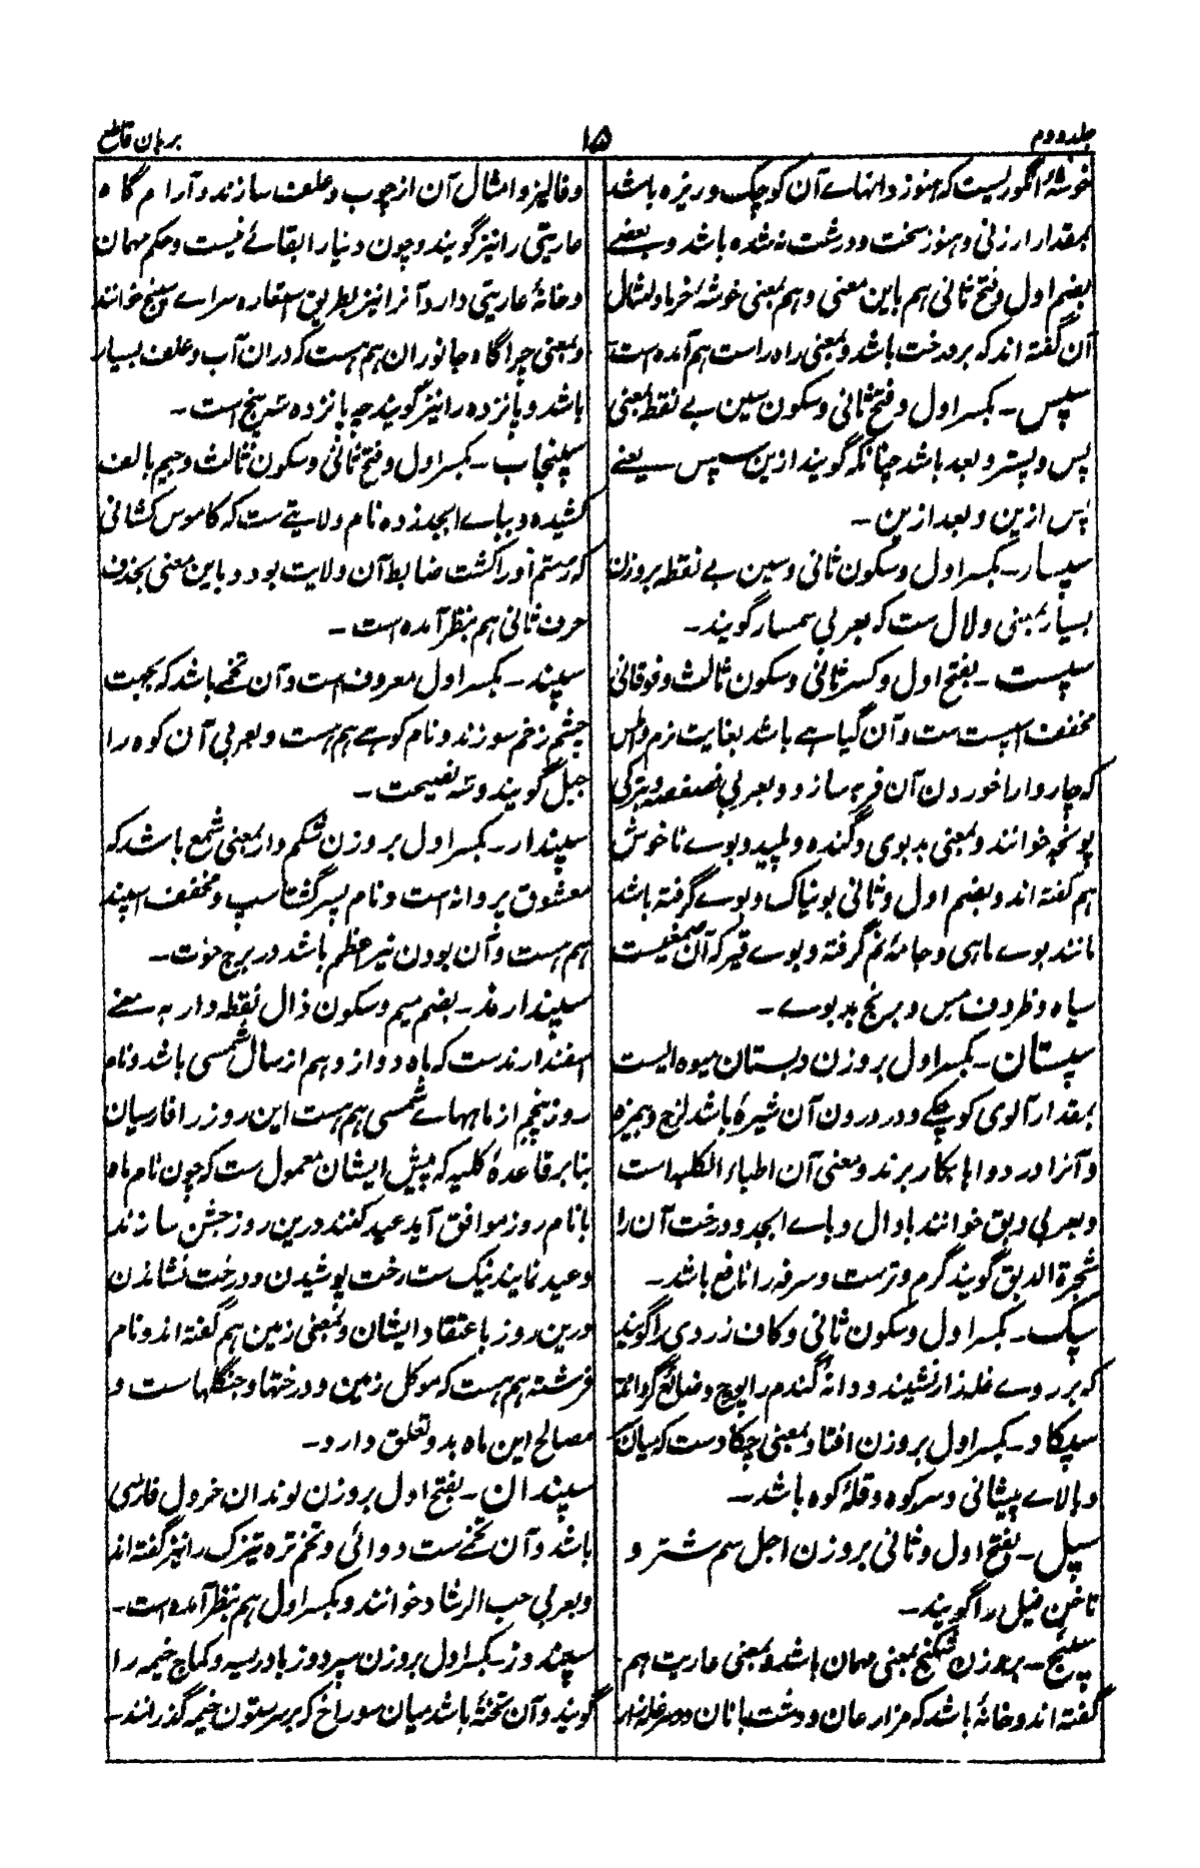 جلد دوم
۱۵
برہان قاطع
خوشۂ انگوریست کہ ہنوز دانہاے آن کوچک و ریزہ باشد
بمقدار ارزنی و ہنوز سخت و درشت نہ شدہ باشد و بعضے
بضم اول و فتح ثانی ہم باین معنی و ہم بمعنی خوشۂ خرما و امثال
آن گفتہ اند کہ بر درخت باشد و بمعنی راہ راست ہم آمدہ است
سپس ۔ بکسر اول و فتح ثانی و سکون سین بے نقطہ بمعنی
پس و پستر و بعد باشد چنانکہ گویند ازین سپس یعنے
پس ازین و بعد ازین ۔
سپسار ۔ بکسر اول و سکون ثانی و سین بے نقطہ بروزن
بسیار بمعنی دلال ست کہ بعربی سمسار گویند ۔
سپست ۔ بفتح اول و کسر ثانی و سکون ثالث و فوقانی
مخفف اسپست ست و آن گیاہے باشد بغایت نرم و املس
کہ چاروا را خوردن آن فربہ سازد و بعربی فصفصہ و بترکی
یونجہ خوانند و بمعنی بدبوی و گندہ و پلید و بوے ناخوش
ہم گفتہ اند و بضم اول و ثانی بوناک و بوے گرفتہ باشد
مانند بوے ماہی و جامۂ نم گرفتہ و بوے قیر کہ آن صمغیست
سیاہ و ظروف مس و برنج بدبوے ۔
سپستان ۔ بکسر اول بروزن دبستان میوہ ایست
بمقدار آلوی کوچکے و در درون آن شیرۂ باشد لزج و بیمزہ
و آنرا در دواہا بکار برند و معنی آن اطباء الکلبہ است
و بعربی دبق خوانند با دال و باے ابجد و درخت آن را
شجرة الدبق گویند گرم و ترست و سرفہ را نافع باشد ۔
سپک ۔ بکسر اول و سکون ثانی و کاف زردی را گویند
کہ بر روے غلہ زار نشیند و دانۂ گندم را پوچ و ضائع گرداند
سپکاد ۔ بکسر اول بروزن افتاد بمعنی چکادست کہ میان
و بالاے پیشانی و سر کوہ و قلۂ کوہ باشد ۔
سپل ۔ بفتح اول و ثانی بروزن اجل سم شتر و
ناخن فیل را گویند ۔
سپنج ۔ بروزن شکنج بمعنی مہمان باشد و بمعنی عاریت ہم
گفتہ اند و خانۂ باشد کہ مزارعان و دشتبانان در سر غلہ زار
و فالیز و امثال آن از چوب و علف سازند و آرام گاہ
عاریتی را نیز گویند و چون دنیا را بقائے نیست و حکم مہمان
و خانۂ عاریتی دارد آنرا نیز بطریق استعارہ سراے سپنج خوانند
و بمعنی چراگاہ جانوران ہم ہست کہ دران آب و علف بسیار
باشد و پانزدہ را نیز گویند چہ پانزدہ سہ پنج است ۔
سپنجاب ۔ بکسر اول و فتح ثانی و سکون ثالث و جیم بالف
کشیدہ و بباے ابجد زدہ نام ولایتے ست کہ کاموس کشانی
کہ رستم او را کشت ضابط آن ولایت بود و باین معنی بحذف
حرف ثانی ہم بنظر آمدہ است ۔
سپند ۔ بکسر اول معروف ست و آن تخمے باشد کہ بجہت
چشم زخم سوزند و نام کوہے ہم ہست و بعربی آن کوہ را
جبل گویند و نصیحت ۔
سپندار ۔ بکسر اول بروزن شکم دار بمعنی شمع باشد کہ
معشوق پروانہ است و نام پسر گشتاسپ و مخفف اسپند
ہم ہست و آن بودن نیر اعظم باشد در برج حوت ۔
سپندارمذ ۔ بضم میم و سکون ذال نقطہ دار بہ معنے
اسفندارمذست کہ ماہ دوازدہم از سال شمسی باشد و نام
روز پنجم از ماہہاے شمسی ہم ہست این روز را فارسیان
بنابر قاعدۂ کلیہ کہ پیش ایشان معمول ست کہ چون نام ماہ
بانام روز موافق آید عید کنند درین روز جشن سازند
و عید نمایند نیک ست رخت پوشیدن و درخت نشاندن
درین روز باعتقاد ایشان و بمعنی زمین ہم گفتہ اند و نام
فرشتہ ہم ہست کہ موکل زمین و درختہا و جنگلہاست و
مصالح این ماہ بدو تعلق دارد ۔
سپندان ۔ بفتح اول بروزن لوندان خردل فارسی
باشد و آن تخمے ست دوائی و تخم ترہ تیزک را نیز گفتہ اند
و بعربی حب الرشاد خوانند و بکسر اول ہم بنظر آمدہ است ۔
سپندوز ۔ بکسر اول بروزن سپردوز بادریسہ و کماج خیمہ را
گویند و آن تختۂ باشد میان سوراخ کہ بر سر ستون خیمہ گذرانند ۔